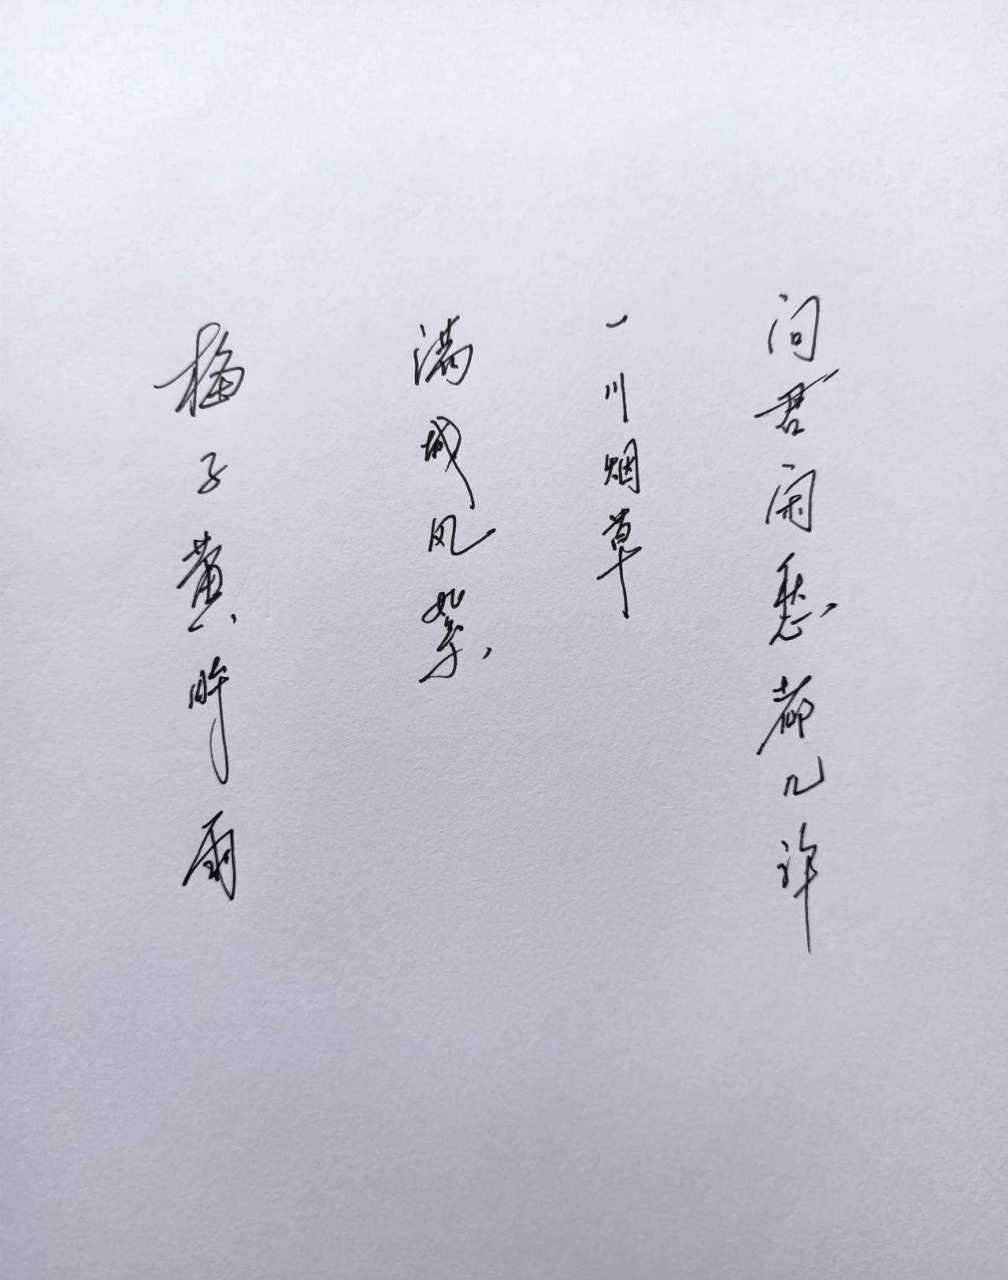 问君闲愁都几许
一川烟草
满城风絮
梅子黄时雨